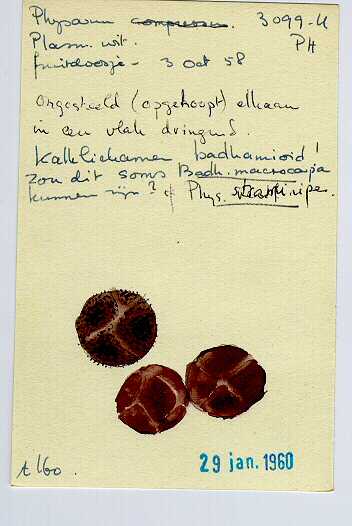 Physarum compressum. 3099-U
Plasm. wit. PH
fruitdoosje - 3 Oct 58
Ongesteeld (opgehoopt) elkaar
in een vlak dringend.
Kalklichamen badhamioid!
Zou dit soms Badh. macrocarpa
kunnen zijn? Phys.
29 jan. 1960